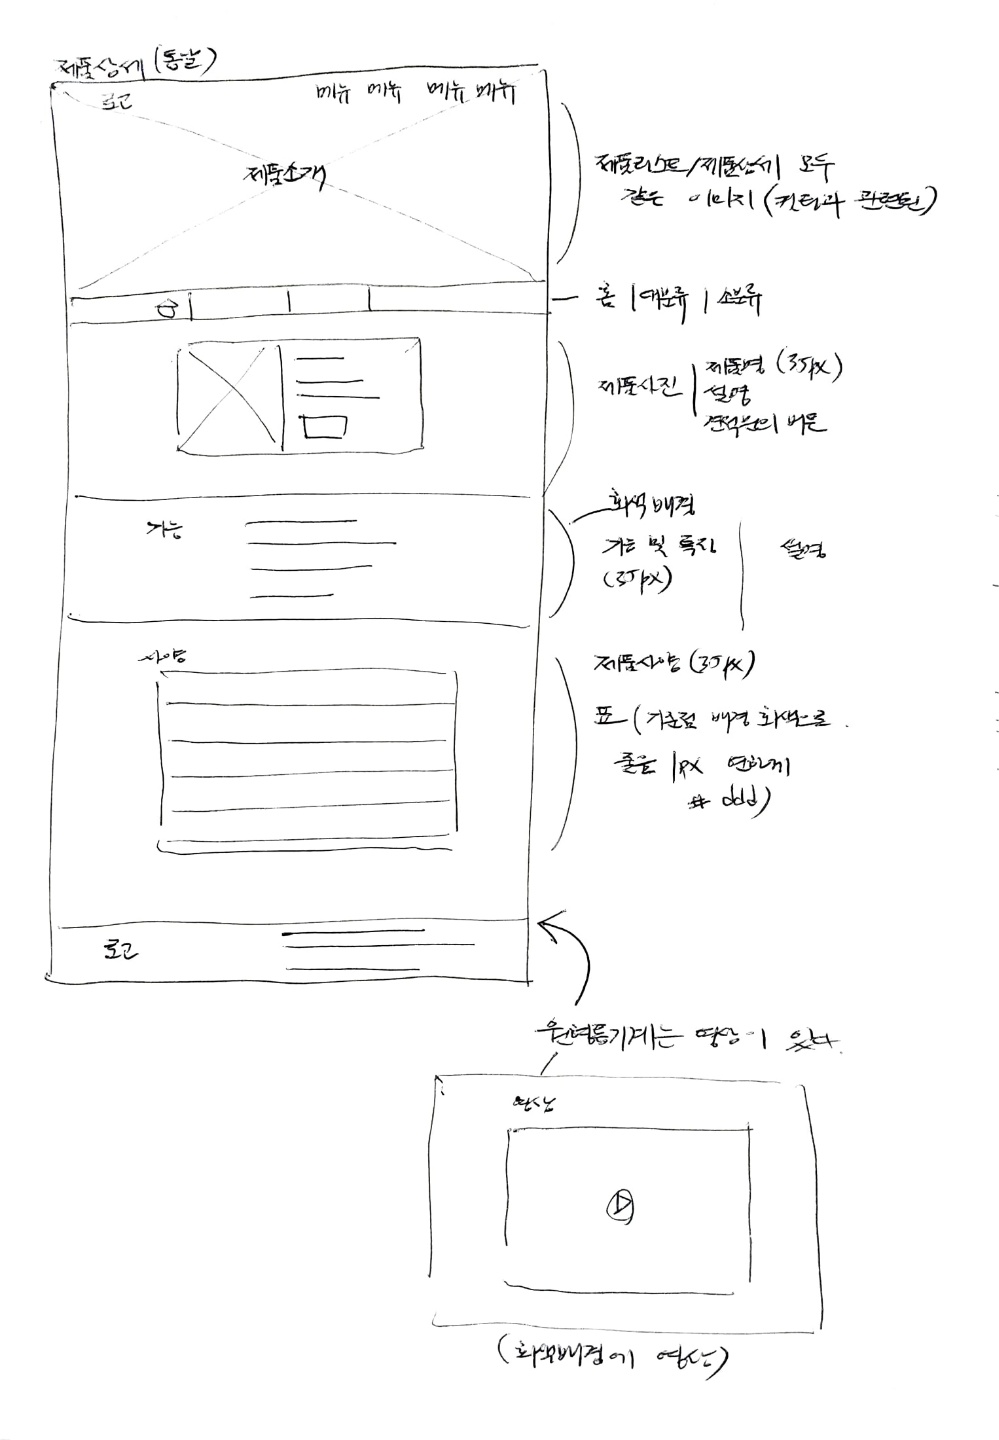 제품상세 (통날)
로고
메뉴 메뉴 메뉴 메뉴
제품소개
제품리스트/제품상세 모두
같은 이미지 (커터과 관련된)
홈 | 대분류 | 소분류
제품사진
제품명 (35px)
설명
견적문의 버튼
회색 배경
기능
기능 및 특징
(35px)
설명
사양
제품사양 (35px)
표 (기준점 배경 회색으로
줄은 1px 연하게
# ddd)
로고
원형톱기계는 영상이 있다.
영상
(회색배경에 영상)